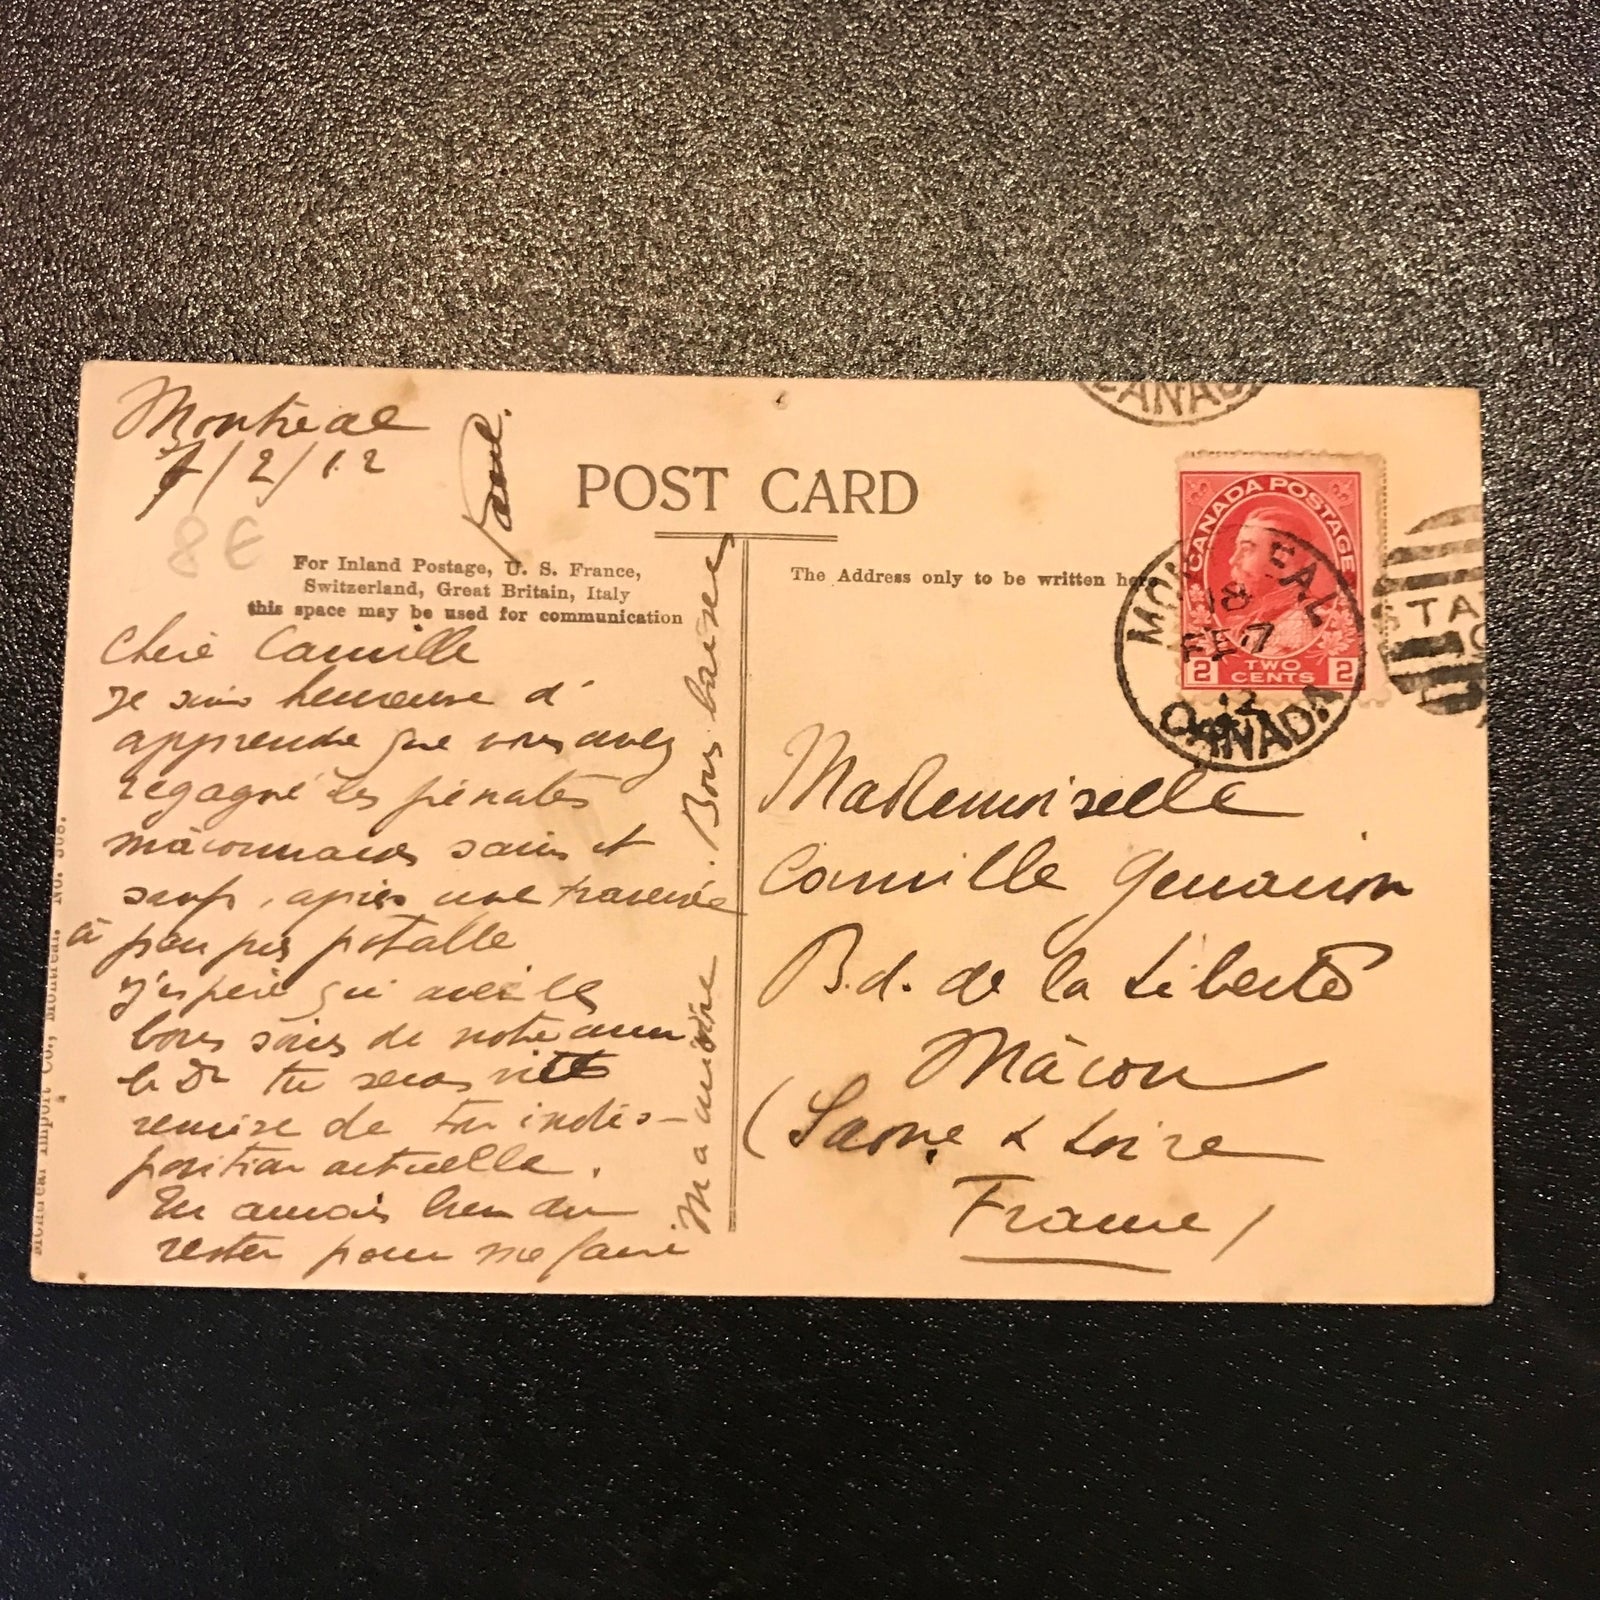 Montréal
7/2/12
8€
Paul.
POST CARD
For Inland Postage, U. S. France,
Switzerland, Great Britain, Italy
this space may be used for communication
The Address only to be written here
CANADA
CANADA POSTAGE
2 TWO CENTS 2
MONTREAL
18
FE 7
12
CANADA
STA
Chère Camille
Je suis heureuse d'
apprendre que vous avez
regagné les pénates
mâconnaises sains et
saufs, après une traversée
à peu près potable
J'espère qu'avec les
bons soins de notre ami
le Dr tu seras vite
remise de ton indis-
position actuelle.
Tu aurais bien dû
rester pour me faire
Ma manière. Bons baisers
Mademoiselle
Camille
B.d. de la Liberté
Mâcon
(Saone & Loire
France)
Montreal Import Co., Montreal. No. 308.